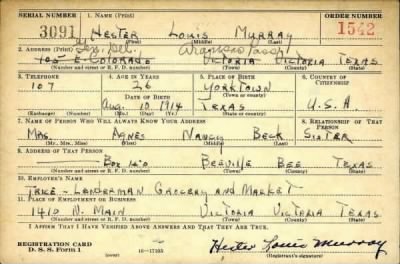 SERIAL NUMBER 1. NAME (Print) ORDER NUMBER
3091 Hester Louis Murray 1542
(First) (Middle) (Last)
2. ADDRESS (Print) Gen. Del. Aransas Pass
105 E. Colorado Victoria Victoria Texas
(Number and street or R. F. D. number) (Town) (County) (State)
3. TELEPHONE 4. AGE IN YEARS 5. PLACE OF BIRTH 6. COUNTRY OF CITIZENSHIP
107 26 Yorktown
DATE OF BIRTH (Town or county)
Aug. 10 1914 Texas U.S.A.
(Exchange) (Number) (Mo.) (Day) (Yr.) (State or country)
7. NAME OF PERSON WHO WILL ALWAYS KNOW YOUR ADDRESS 8. RELATIONSHIP OF THAT PERSON
Mrs. Agnes Nancy Beck Sister
(Mr., Mrs., Miss) (First) (Middle) (Last)
9. ADDRESS OF THAT PERSON
Box Beeville Bee Texas
(Number and street or R. F. D. number) (Town) (County) (State)
10. EMPLOYER'S NAME
Lenderman Grocery and Market
11. PLACE OF EMPLOYMENT OR BUSINESS
1410 N. Main Victoria Victoria Texas
(Number and street or R. F. D. number) (Town) (County) (State)
I AFFIRM THAT I HAVE VERIFIED ABOVE ANSWERS AND THAT THEY ARE TRUE.
REGISTRATION CARD
D. S. S. Form 1 16—17105 Hester Louis Murray
(Registrant's signature)